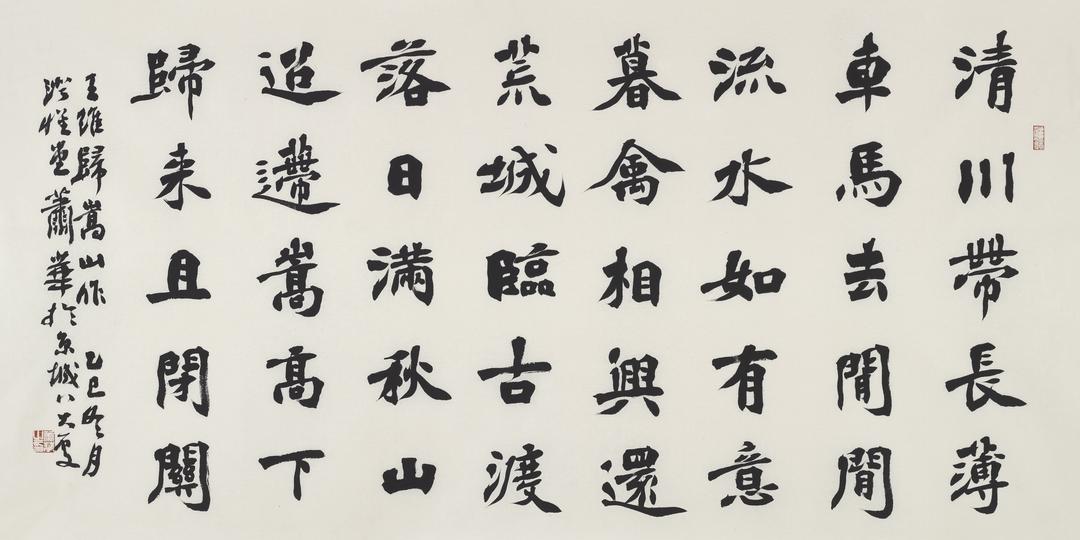 清川帶長薄
車馬去閒閒
流水如有意
暮禽相與還
荒城臨古渡
落日滿秋山
迢遰嵩高下
歸来且閉關
王維歸嵩山作 乙巳冬月
堂蕭華於京城八大處